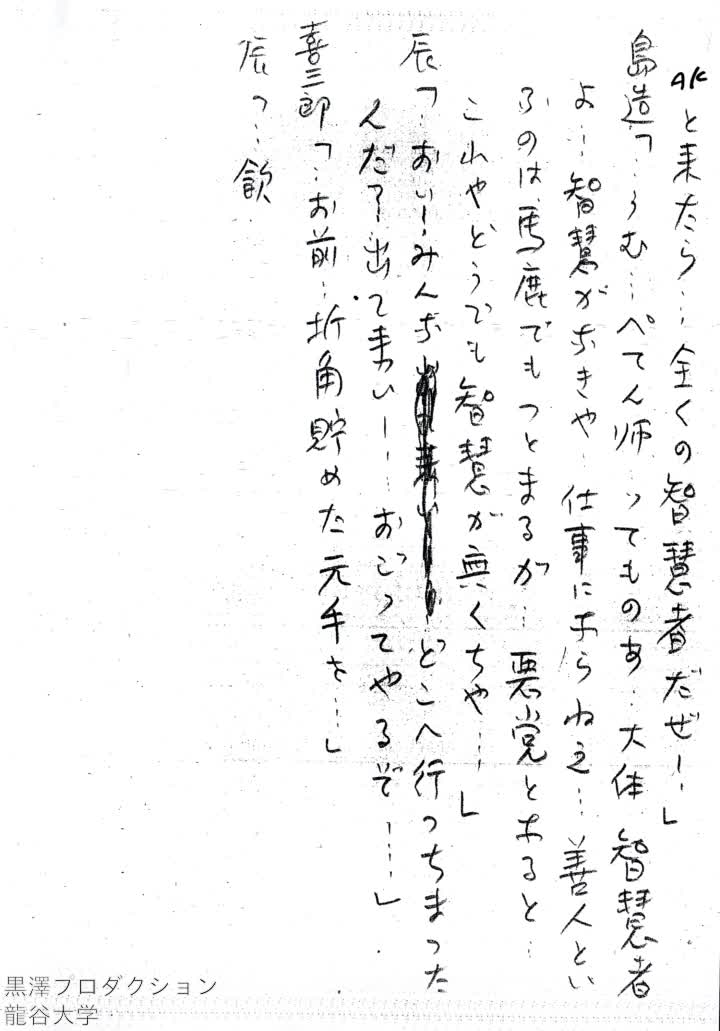 AKと来たら…全くの智慧者だぜ――」
島造「…うむ…ぺてん師ってものあ…大体 智慧者
よ…智慧がなきや…仕事にならねえ…善人とい
ふのは馬鹿でもつとまるが…悪党となると…
これやどうでも智慧が無くちや…」
辰「…おい―みんな―どこへ行つちまつた
んだ?出て来い――おごってやるぞ――…」
喜三郎「…お前…折角貯めた元手を…」
辰「…飲
黒澤プロダクション
龍谷大学